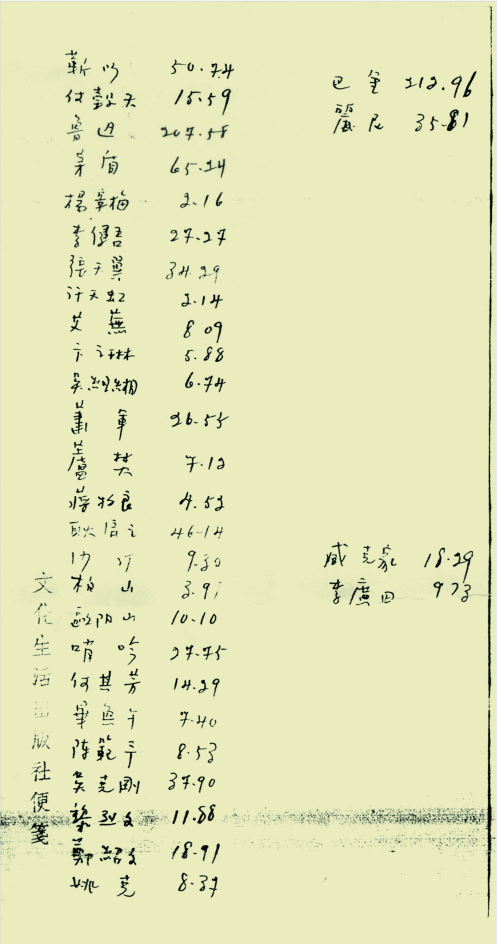 靳以 50.74
何穀天 15.59
魯迅 207.58
茅盾 65.24
楊 2.16
李健吾 27.27
張天翼 34.29
許天虹 2.14
艾蕪 8.09
卞之琳 5.88
吳組緗 6.74
蕭軍 26.55
蘆焚 7.12
蔣牧良 4.52
耿濟之 46.14
沙汀 9.30
柏山 3.91
歐陽山 10.10
哨吟 27.75
何其芳 14.29
畢奐午 7.40
陳範予 8.53
吳克剛 37.90
黎烈文 11.88
鄭紹文 18.91
姚克 8.37
巴金 212.96
麗尼 35.81
臧克家 18.29
李廣田 9.73
文化生活出版社便箋